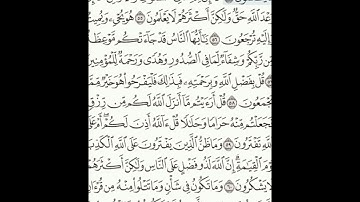 وَعْدَ ٱللَّهِ حَقٌّ وَلَٰكِنَّ أَكْثَرَهُمْ لَا يَعْلَمُونَ ٥٥ هُوَ يُحْىِۦ وَيُمِيتُ
وَإِلَيْهِ تُرْجَعُونَ ٥٦ يَٰٓأَيُّهَا ٱلنَّاسُ قَدْ جَآءَتْكُم مَّوْعِظَةٌ
مِّن رَّبِّكُمْ وَشِفَآءٌ لِّمَا فِى ٱلصُّدُورِ وَهُدًى وَرَحْمَةٌ لِّلْمُؤْمِنِينَ
قُلْ بِفَضْلِ ٱللَّهِ وَبِرَحْمَتِهِۦ فَبِذَٰلِكَ فَلْيَفْرَحُوا۟ هُوَ خَيْرٌ مِّمَّا
يَجْمَعُونَ ٥٨ قُلْ أَرَءَيْتُم مَّآ أَنزَلَ ٱللَّهُ لَكُم مِّن رِّزْقٍ
فَجَعَلْتُم مِّنْهُ حَرَامًا وَحَلَٰلًا قُلْ ءَآللَّهُ أَذِنَ لَكُمْ أَمْ عَلَى
ٱللَّهِ تَفْتَرُونَ ٥٩ وَمَا ظَنُّ ٱلَّذِينَ يَفْتَرُونَ عَلَى ٱللَّهِ ٱلْكَذِبَ
يَوْمَ ٱلْقِيَٰمَةِ إِنَّ ٱللَّهَ لَذُو فَضْلٍ عَلَى ٱلنَّاسِ وَلَٰكِنَّ أَكْثَرَهُمْ
لَا يَشْكُرُونَ ٦٠ وَمَا تَكُونُ فِى شَأْنٍ وَمَا تَتْلُوا۟ مِنْهُ مِن قُرْءَانٍ